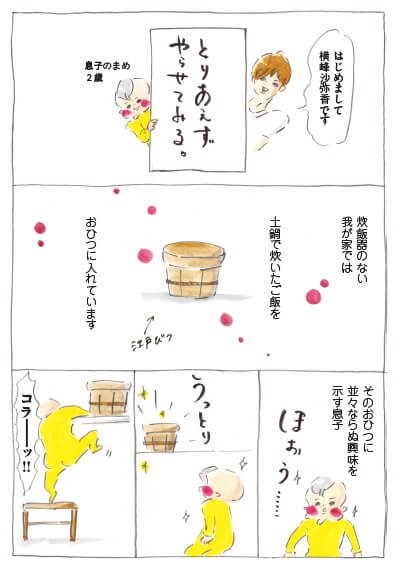 はじめまして
横峰沙弥香です
とりあえず
やらせてみる。
息子のまめ
2歳
炊飯器のない
我が家では
土鍋で炊いたご飯を
おひつに入れています
江戸びつ
そのおひつに
並々ならぬ興味を
示す息子
ほぉぅ……
うっとり
コラーーッ!!